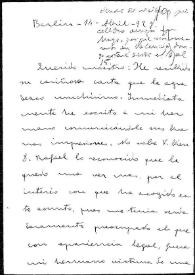 Berlin - 14 - Abril - 929
Querido maestro: He recibido
su cariñosa carta que le agra-
dezco muchísimo. Inmediata-
mente he escrito a mi her-
mano comunicándole sus bue-
nas impresiones. No sabe V. bien
D. Rafael lo reconocido que le
quedo una vez más, por el
interés con que ha acogido es-
te asunto, pues me tenía verda-
deramente preocupado el que
con apariencia legal, fuese
mi hermano víctima de un